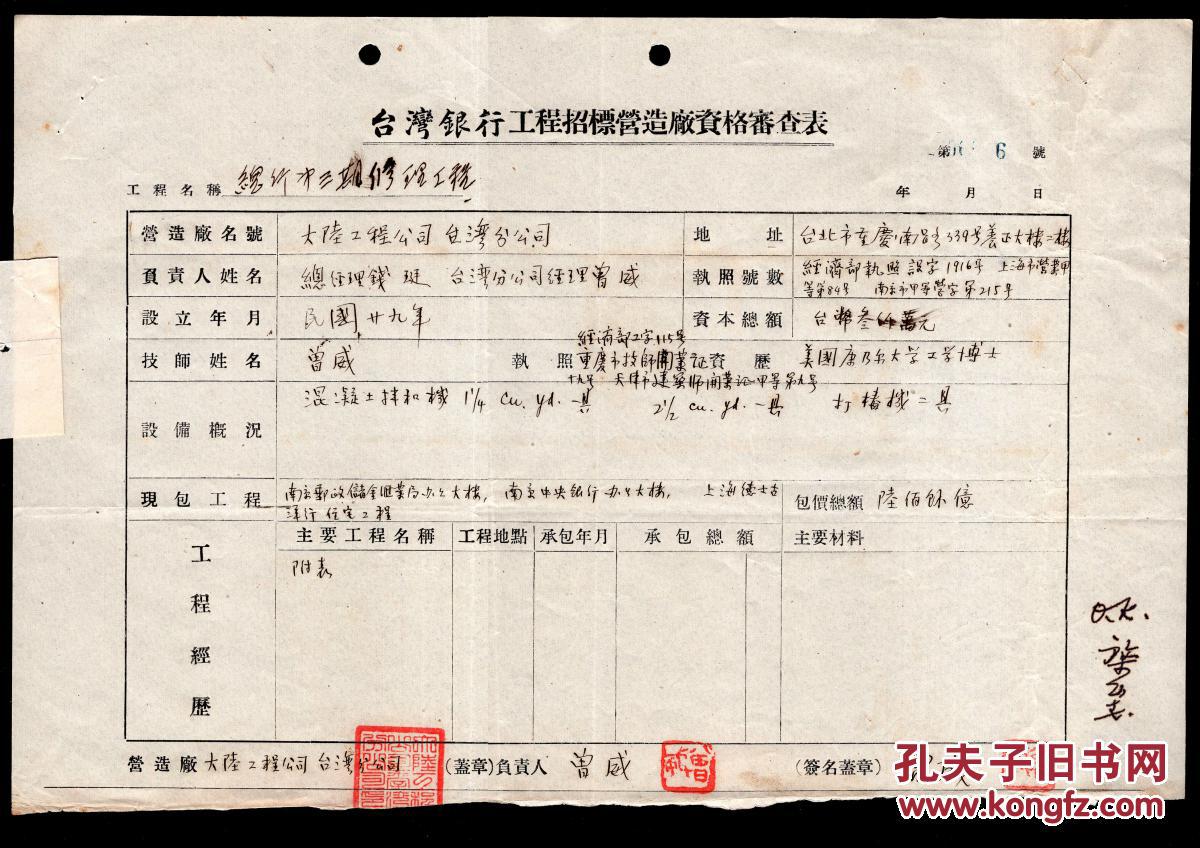 台灣銀行工程招標營造廠資格審查表
第 6 號
工程名稱 總行第三期修理工程
年 月 日
營造廠名號 大陸工程公司 台灣分公司 地址 台北市重慶南路 339号 大樓二樓
負責人姓名 總經理錢 台湾分公司經理曾威 執照號數 經濟部執照設字1916号 上海市營業甲等第84号 南京市甲等營字第215号
設立年月 民國廿九年 資本總額 台幣叁 萬元
技師姓名 曾威 執照 經濟部工字115号 重慶市技師開業証 十九号 天津市建筑師開業証甲等第九号 資歷 美國康乃尔大学工学博士
設備概況 混凝土拌和機 1¼ cu. yd. 一具 2½ cu. yd. 一具 打樁機二具
現包工程 南京郵政儲金匯業局办公大樓, 南京中央銀行办公大樓, 上海德士古洋行住宅工程 包價總額 陸佰餘億
工程經歷 主要工程名稱 工程地點 承包年月 承包總額 主要材料
附表
O.K.
營造廠 大陸工程公司 台湾分公司 (蓋章)負責人 曾威 (簽名蓋章)
孔夫子旧书网
www.kongfz.com